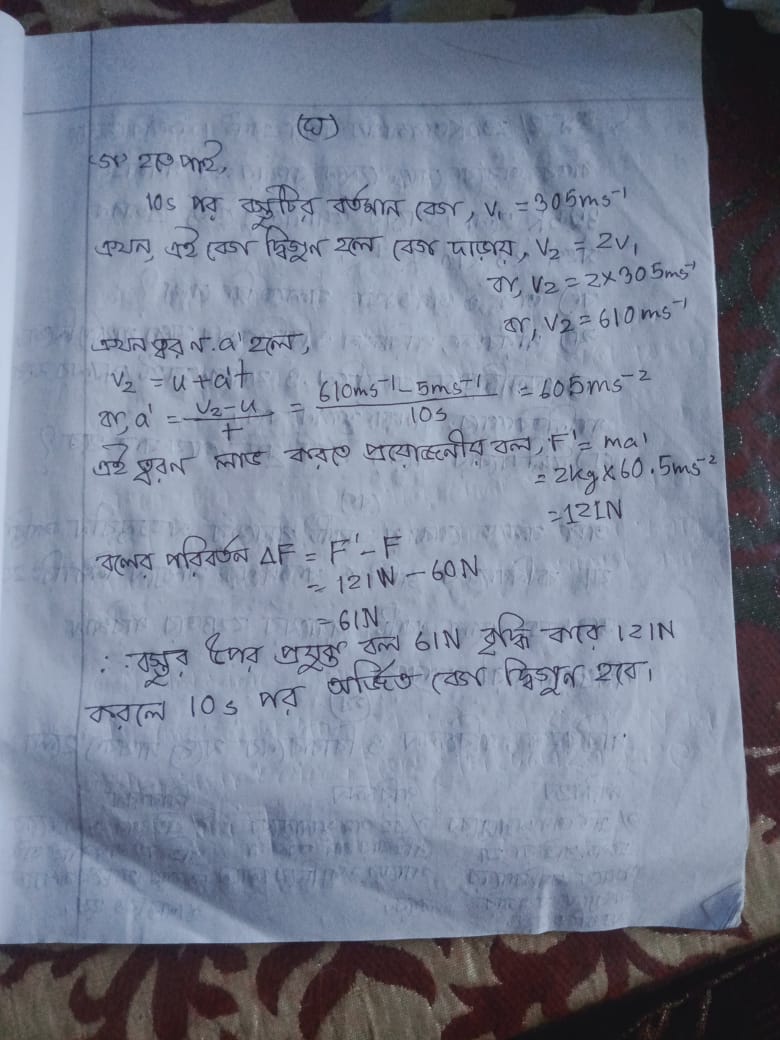 (ঘ)
'গ' হতে পাই,
10s পর বস্তুটির বর্তমান বেগ, v₁ = 305ms⁻¹
এখন, এই বেগ দ্বিগুন হলে বেগ দাড়ায়, v₂ = 2v₁
বা, v₂ = 2×305ms⁻¹
বা, v₂ = 610ms⁻¹
এখন ত্বরন a' হলে,
v₂ = u + a't
বা, a' = (v₂-u)/t = (610ms⁻¹ - 5ms⁻¹)/10s = 605ms⁻²
এই ত্বরন লাভ করতে প্রয়োজনীয় বল, F' = ma'
= 2kg×60.5ms⁻²
= 121N
বলের পরিবর্তন ΔF = F' - F
= 121N - 60N
= 61N
∴ বস্তুর উপর প্রযুক্ত বল 61N বৃদ্ধি করে 121N
করলে 10s পর অর্জিত বেগ দ্বিগুন হবে।